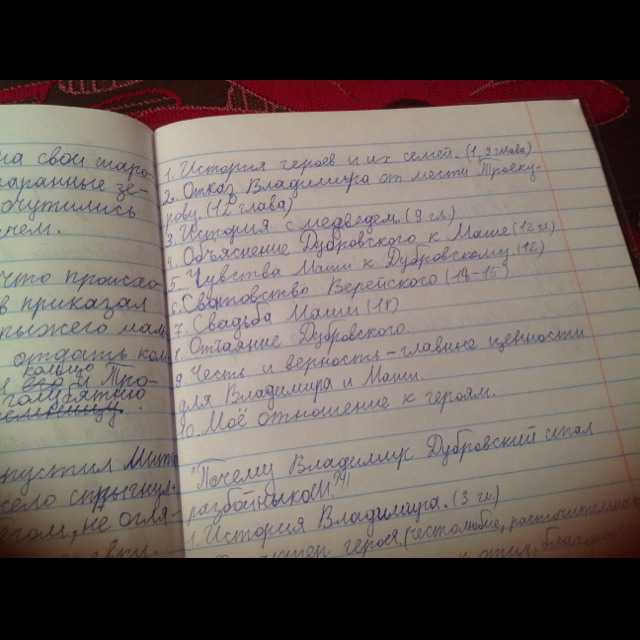 на свои
ве-
очутились
нем.
что происхо-
в приказал
рыжего
отдать
кольцо
и его и Тро-
пустил
село спрыгнул
не огля-
1. История героев и их семей. (1, 2 глава)
2. Отказ Владимира от мести Троеку-
рову (12 глава)
3. История с медведем. (8 гл.)
4. Объяснение Дубровского к Маше (12 гл)
5. Чувства Маши к Дубровскому
6. Сватовство Верейского (14-15)
7. Свадьба Маши
8. Отчаяние Дубровского.
9. Честь и верность - главные ценности
для Владимира и Маши.
10. Моё отношение к героям.
"Почему Владимир Дубровский стал
разбойником?"
1. История Владимира. (3 гл.)
героя (честолюбие, расточительность